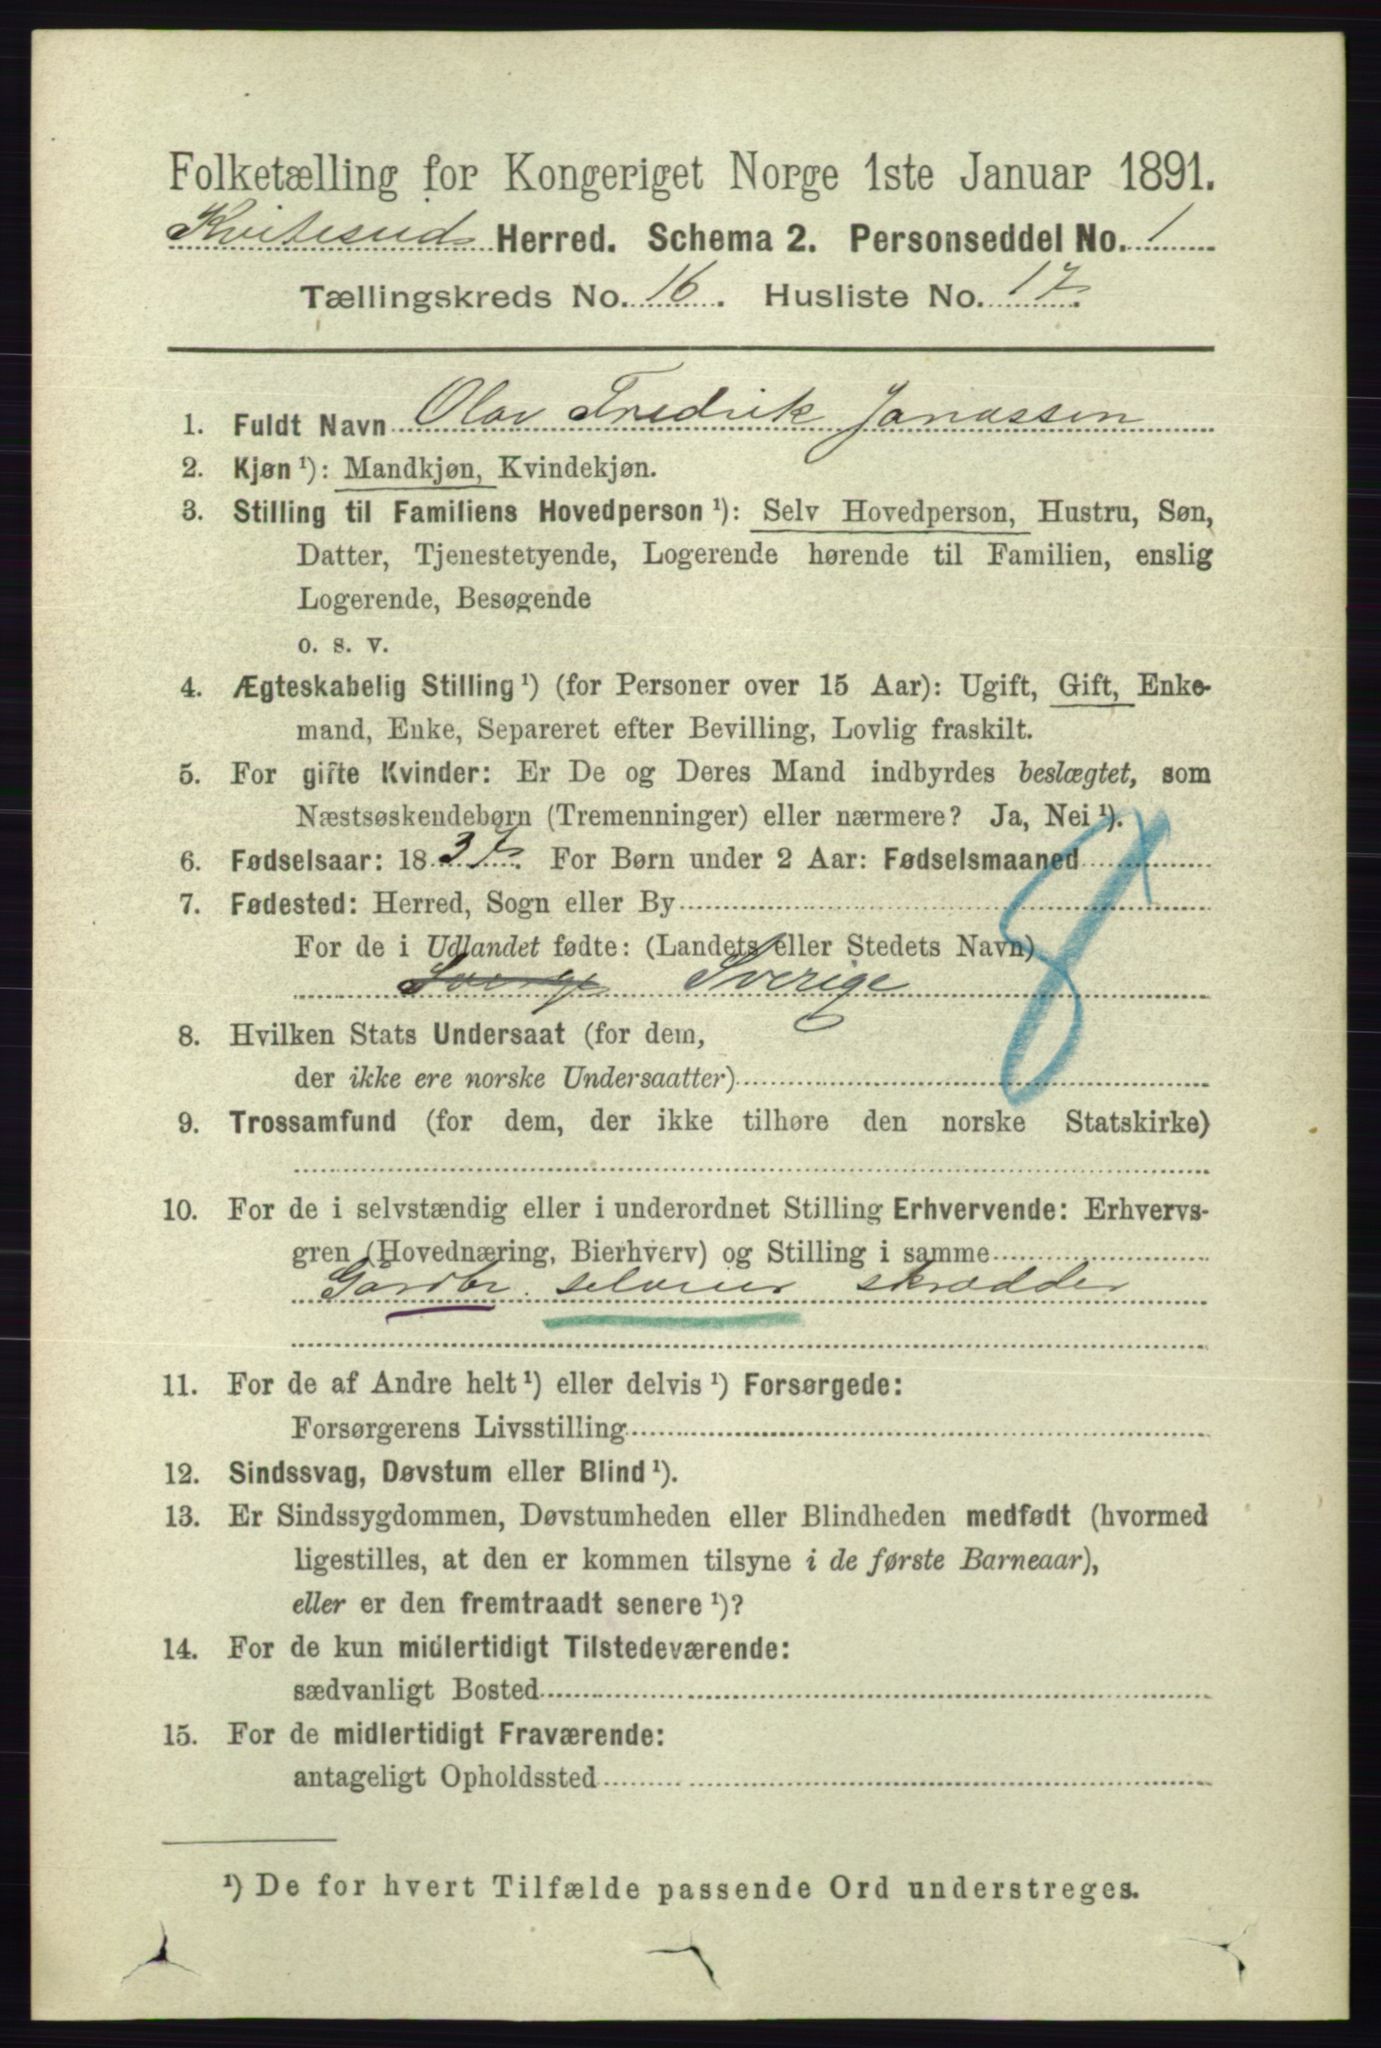 Folketælling for Kongeriget Norge 1ste Januar 1891.
Kvitesud Herred. Schema 2. Personseddel No. 1
Tællingskreds No. 16. Husliste No. 17.
1. Fuldt Navn Olav Fredrik Janassen
2. Kjøn ¹): Mandkjøn, Kvindekjøn.
3. Stilling til Familiens Hovedperson ¹): Selv Hovedperson, Hustru, Søn,
Datter, Tjenestetyende, Logerende hørende til Familien, enslig
Logerende, Besøgende
o. s. v.
4. Ægteskabelig Stilling ¹) (for Personer over 15 Aar): Ugift, Gift, Enke-
mand, Enke, Separeret efter Bevilling, Lovlig fraskilt.
5. For gifte Kvinder: Er De og Deres Mand indbyrdes beslægtet, som
Næstsøskendebørn (Tremenninger) eller nærmere? Ja, Nei ¹).
6. Fødselsaar: 1837. For Børn under 2 Aar: Fødselsmaaned
7. Fødested: Herred, Sogn eller By
For de i Udlandet fødte: (Landets eller Stedets Navn)
Sverige Sverige
8. Hvilken Stats Undersaat (for dem,
der ikke ere norske Undersaatter)
9. Trossamfund (for dem, der ikke tilhøre den norske Statskirke)
10. For de i selvstændig eller i underordnet Stilling Erhvervende: Erhvervs-
gren (Hovednæring, Bierhverv) og Stilling i samme
Gardbr. skrædder
11. For de af Andre helt ¹) eller delvis ¹) Forsørgede:
Forsørgerens Livsstilling
12. Sindssvag, Døvstum eller Blind ¹).
13. Er Sindssygdommen, Døvstumheden eller Blindheden medfødt (hvormed
ligestilles, at den er kommen tilsyne i de første Barneaar),
eller er den fremtraadt senere ¹)?
14. For de kun midlertidigt Tilstedeværende:
sædvanligt Bosted
15. For de midlertidigt Fraværende:
antageligt Opholdssted
¹) De for hvert Tilfælde passende Ord understreges.